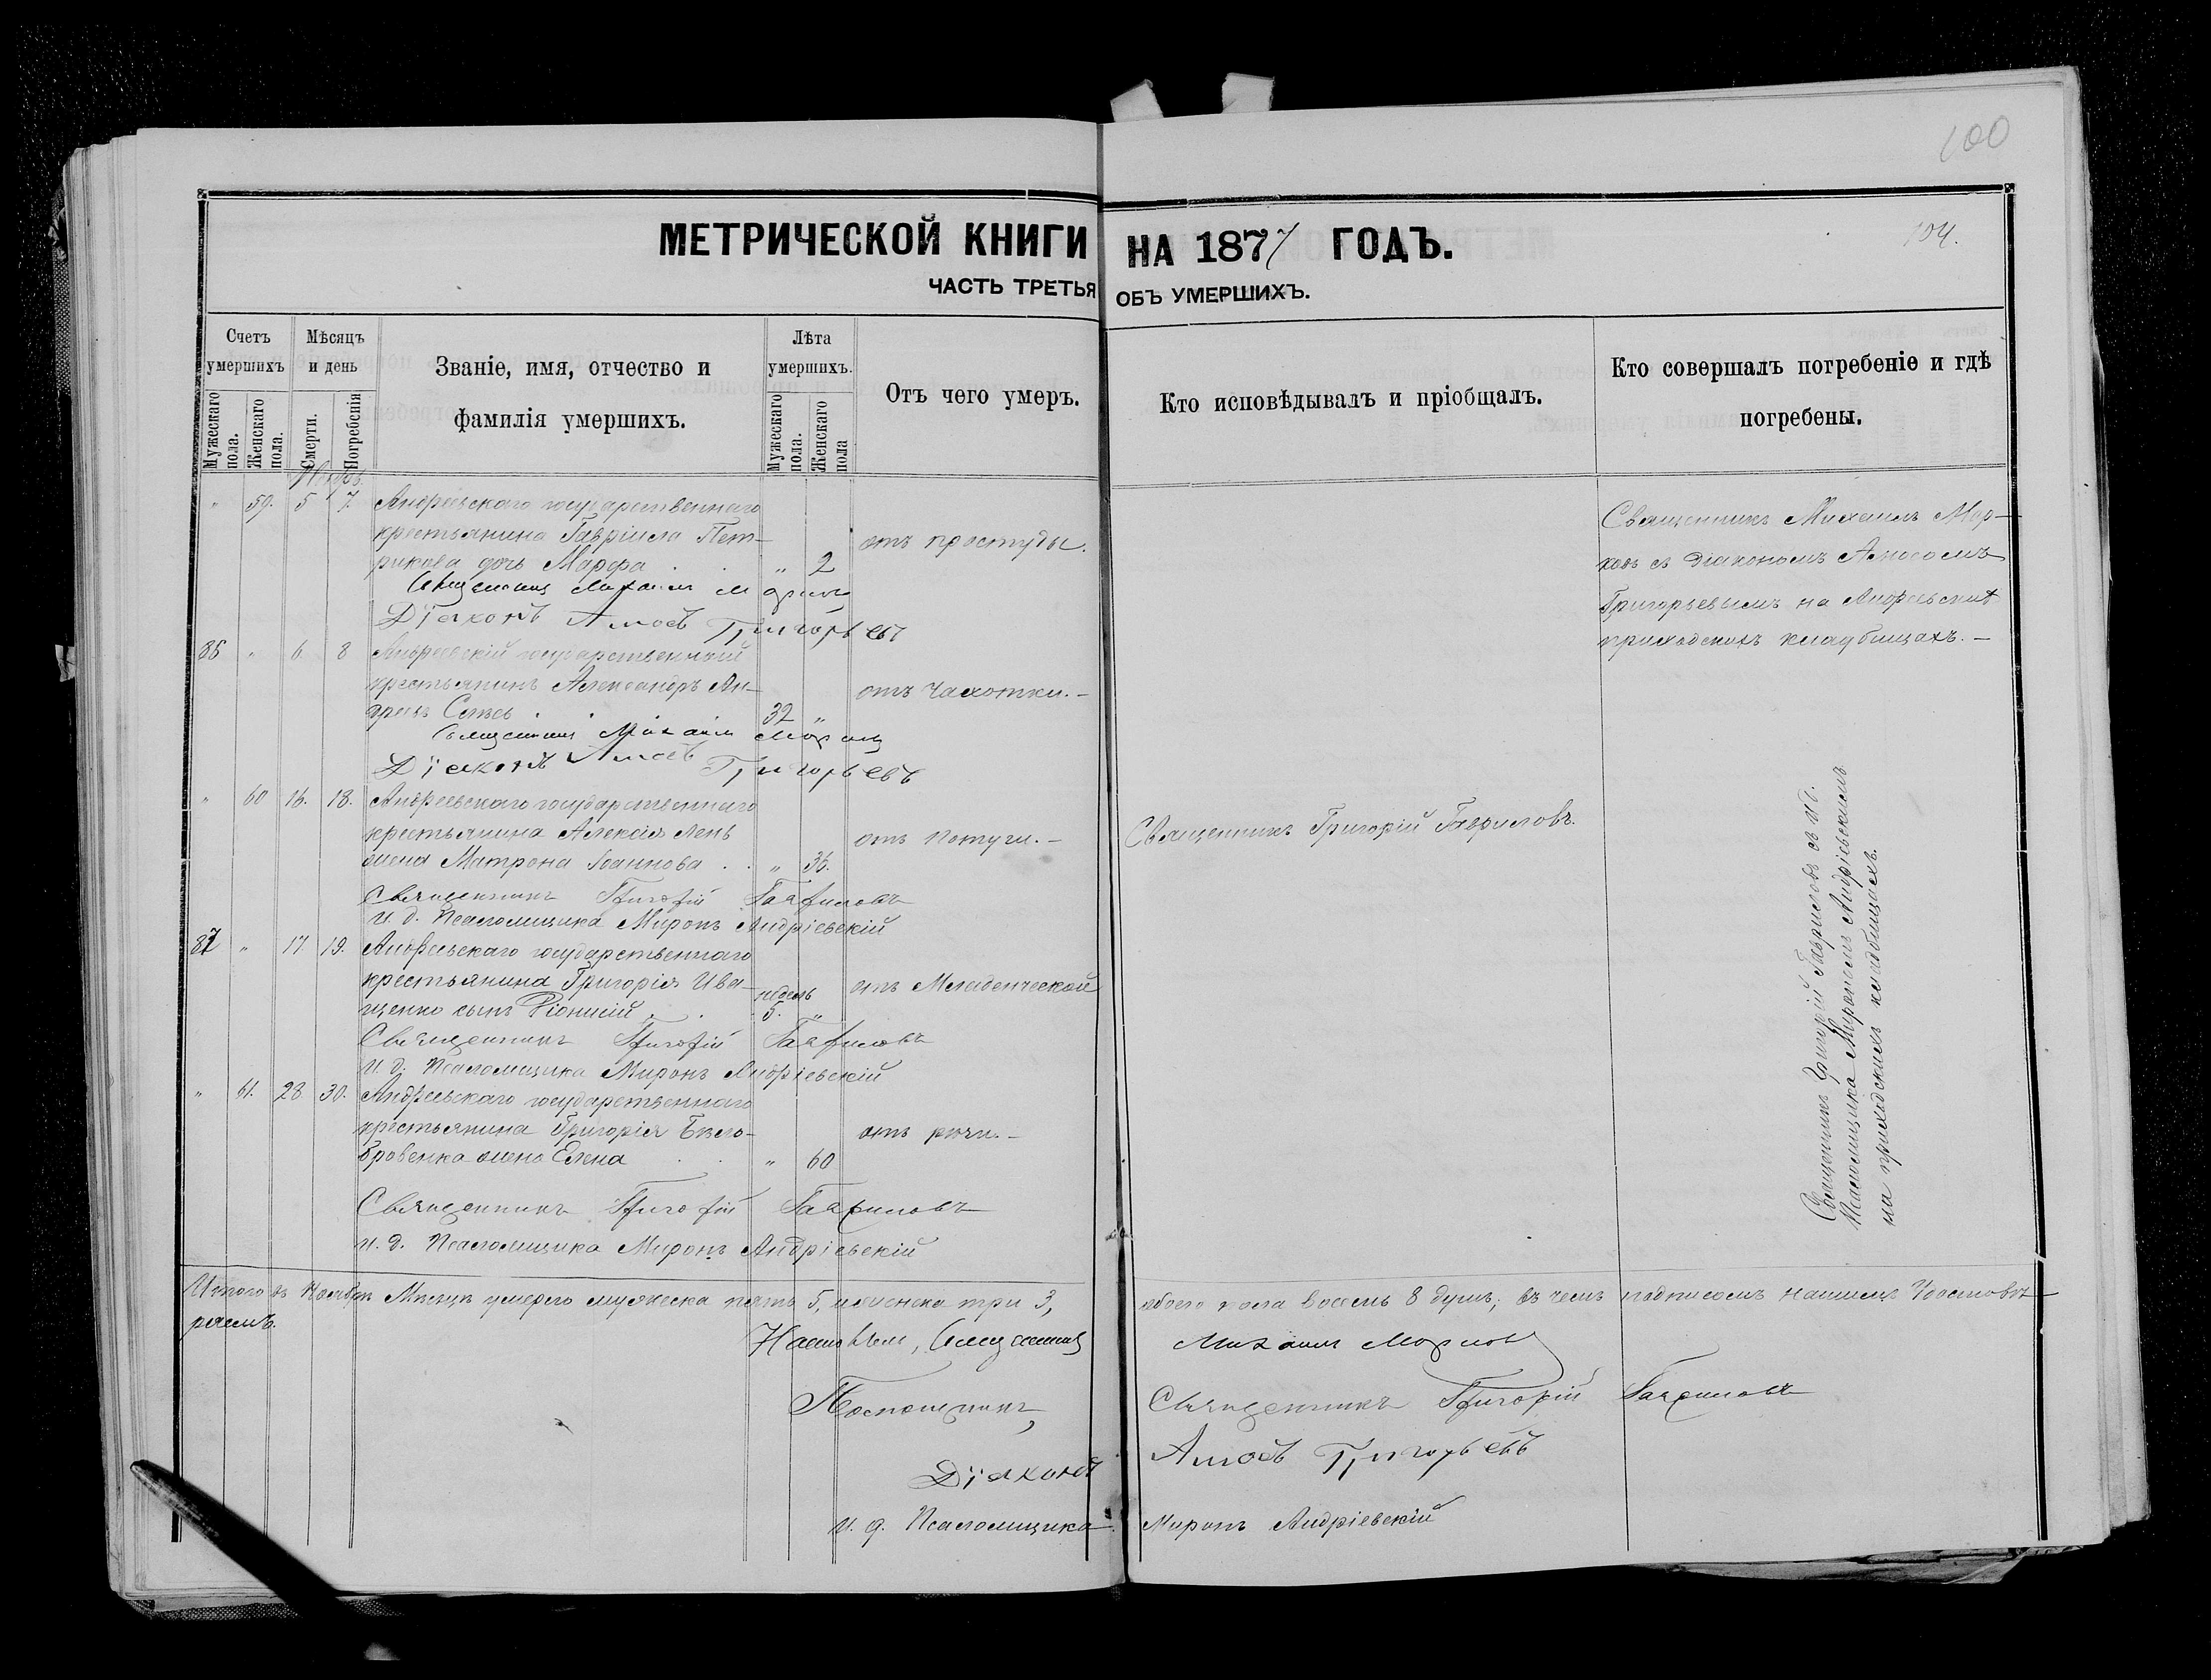 100
104.
МЕТРИЧЕСКОЙ КНИГИ НА 1877 ГОДЪ.
ЧАСТЬ ТРЕТЬЯ ОБЪ УМЕРШИХЪ.
Счетъ умершихъ
Мѣсяцъ и день
Званіе, имя, отчество и фамилія умершихъ.
Лѣта умершихъ.
Отъ чего умеръ.
Кто исповѣдывалъ и пріобщалъ.
Кто совершалъ погребеніе и гдѣ погребены.
Мужескаго пола.
Женскаго пола.
Смерти.
Погребенія
Мужескаго пола.
Женскаго пола
" 59. 5 7. Андреевскаго государственнаго
крестьянина Гавріила Пет-
рикова дочь Марфа . . " 2
отъ простуды.
Священникъ Михаилъ
Діаконъ Амосъ Григорьевъ
Священникъ Михаилъ Мор-
ковъ съ Діакономъ Амосомъ
Григорьевымъ на Андреевскихъ
приходскихъ кладбищахъ. —
86 " 6. 8 Андреевскій государственный
крестьянинъ Александръ Ан-
32 "
отъ чахотки. —
Священникъ Михаилъ
Діаконъ Амосъ Григорьевъ
" 60 16. 18. Андреевскаго государственнаго
крестьянина Алексія Лень
жена Матрона Іоаннова . . " 36.
отъ потуги. —
Священникъ Григорій Гавриловъ.
Священникъ Григорій Гавриловъ
и. д. Псаломщика Миронъ Андріевскій
87 " 17 19. Андреевскаго государственнаго
крестьянина Григорія Ива-
щенко сынъ Діонисій . . недель 5. "
отъ Младенческой
Священникъ Григорій Гавриловъ
и. д. Псаломщика Миронъ Андріевскій
" 61. 28 30. Андреевскаго государственнаго
крестьянина Григорія Бѣло-
бровенка жена Елена . . " 60
отъ рожи. —
Священникъ Григорій Гавриловъ
и. д. Псаломщика Миронъ Андріевскій
Священникъ Григорій Гавриловъ съ и. д.
Псаломщика Мирономъ Андріевскимъ
на приходскихъ кладбищахъ.
Итого въ Ноябрѣ Мѣсяцѣ умерло мужеска пять 5, и женска три 3, обоего пола восемь 8 душъ; въ чемъ подписомъ нашимъ
Настоятель, Священникъ Михаилъ
Помощникъ, Священникъ Григорій Гавриловъ
Діаконъ Амосъ Григорьевъ
и. д. Псаломщика Миронъ Андріевскій